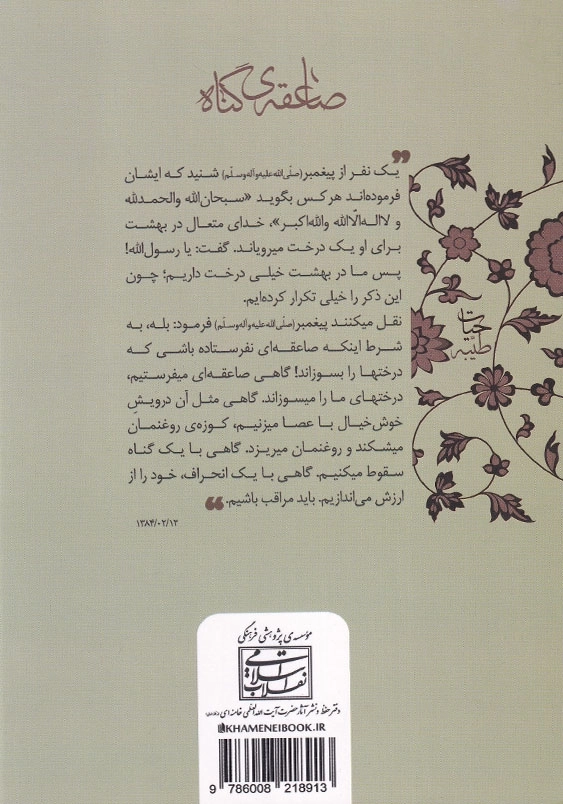 صاعقه‌ی گناه
یک نفر از پیغمبر (صلّی‌الله‌علیه‌وآله‌وسلّم) شنید که ایشان
فرموده‌اند هر کس بگوید «سبحان‌الله والحمدلله
و لااله‌الّاالله والله‌اکبر»، خدای متعال در بهشت
برای او یک درخت میرویاند. گفت: یا رسول‌الله!
پس ما در بهشت خیلی درخت داریم؛ چون
این ذکر را خیلی تکرار کرده‌ایم.
نقل میکنند پیغمبر (صلّی‌الله‌علیه‌وآله‌وسلّم) فرمود: بله، به
شرط اینکه صاعقه‌ای نفرستاده باشی که
درختها را بسوزاند! گاهی صاعقه‌ای میفرستیم،
درختهای ما را میسوزاند. گاهی مثل آن درویشِ
خوش‌خیال با عصا میزنیم، کوزه‌ی روغنمان
میشکند و روغنمان میریزد. گاهی با یک گناه
سقوط میکنیم. گاهی با یک انحراف، خود را از
ارزش می‌اندازیم. باید مراقب باشیم.
۱۳۸۴/۰۲/۱۳
حیات
طیّبه
مؤسسه‌ی پژوهشی فرهنگی
انقلاب اسلامی
دفتر حفظ و نشر آثار حضرت آیت‌الله‌العظمی خامنه‌ای
KHAMENEIBOOK.IR
9 786008 218913